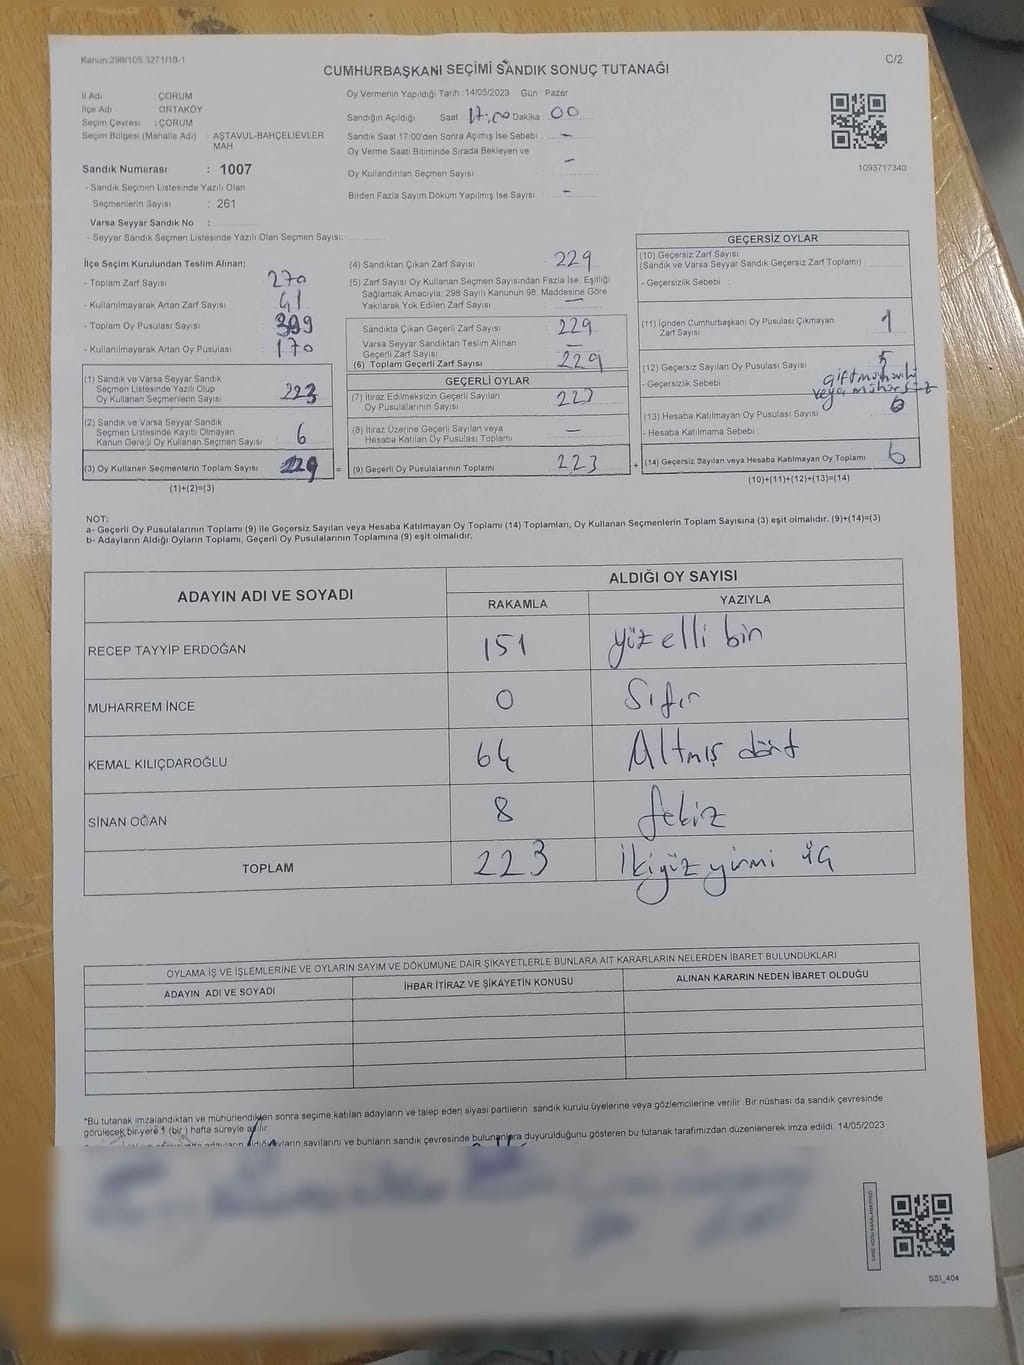 Kanun:298/105 3271/18-1
C/2
CUMHURBAŞKANI SEÇİMİ SANDIK SONUÇ TUTANAĞI
İl Adı ÇORUM
İlçe Adı ORTAKÖY
Seçim Çevresi : ÇORUM
Seçim Bölgesi (Mahalle Adı) : AŞTAVUL-BAHÇELİEVLER MAH
Sandık Numarası : 1007
- Sandık Seçmen Listesinde Yazılı Olan
Seçmenlerin Sayısı : 261
Varsa Seyyar Sandık No :
- Seyyar Sandık Seçmen Listesinde Yazılı Olan Seçmen Sayısı:
Oy Vermenin Yapıldığı Tarih :14/05/2023 Gün : Pazar
Sandığın Açıldığı Saat : 17:00 Dakika : 00
Sandık Saat 17:00'den Sonra Açımış İse Sebebi : –
Oy Verme Saati Bitiminde Sırada Bekleyen ve
Oy Kullandırılan Seçmen Sayısı –
Birden Fazla Sayım Döküm Yapılmış İse Sayısı –
1093717340
İlçe Seçim Kurulundan Teslim Alınan;
- Toplam Zarf Sayısı : 270
- Kullanılmayarak Artan Zarf Sayısı : 41
- Toplam Oy Pusulası Sayısı : 399
- Kullanılmayarak Artan Oy Pusulası : 170
(1) Sandık ve Varsa Seyyar Sandık
Seçmen Listesinde Yazılı Olup
Oy Kullanan Seçmenlerin Sayısı 223
(2) Sandık ve Varsa Seyyar Sandık
Seçmen Listesinde Kayıtlı Olmayan
Kanun Gereği Oy Kullanan Seçmen Sayısı 6
(3) Oy Kullanan Seçmenlerin Toplam Sayısı 229 =
(1)+(2)=(3)
(4) Sandıktan Çıkan Zarf Sayısı 229
(5) Zarf Sayısı Oy Kullanan Seçmen Sayısından Fazla İse, Eşitliği
Sağlamak Amacıyla, 298 Sayılı Kanunun 98. Maddesine Göre
Yakılarak Yok Edilen Zarf Sayısı –
Sandıkta Çıkan Geçerli Zarf Sayısı 229
Varsa Seyyar Sandıktan Teslim Alınan
Geçerli Zarf Sayısı –
(6) Toplam Geçerli Zarf Sayısı 229
GEÇERLİ OYLAR
(7) İtiraz Edilmeksizin Geçerli Sayılan
Oy Pusulalarının Sayısı 223
(8) İtiraz Üzerine Geçerli Sayılan veya
Hesaba Katılan Oy Pusulası Toplamı –
(9) Geçerli Oy Pusulalarının Toplamı 223 +
GEÇERSİZ OYLAR
(10) Geçersiz Zarf Sayısı
(Sandık ve Varsa Seyyar Sandık Geçersiz Zarf Toplamı)
- Geçersizlik Sebebi :
(11) İçinden Cumhurbaşkanı Oy Pusulası Çıkmayan
Zarf Sayısı 1
(12) Geçersiz Sayılan Oy Pusulası Sayısı 5
- Geçersizlik Sebebi : Çift mühürlü
veya mühürsüz
(13) Hesaba Katılmayan Oy Pusulası Sayısı 6
- Hesaba Katılmama Sebebi :
(14) Geçersiz Sayılan veya Hesaba Katılmayan Oy Toplamı 6
(10)+(11)+(12)+(13)=(14)
NOT:
a- Geçerli Oy Pusulalarının Toplamı (9) ile Geçersiz Sayılan veya Hesaba Katılmayan Oy Toplamı (14) Toplamları, Oy Kullanan Seçmenlerin Toplam Sayısına (3) eşit olmalıdır. (9)+(14)=(3)
b- Adayların Aldığı Oyların Toplamı, Geçerli Oy Pusulalarının Toplamına (9) eşit olmalıdır.
ADAYIN ADI VE SOYADI
ALDIĞI OY SAYISI
RAKAMLA YAZIYLA
RECEP TAYYİP ERDOĞAN 151 yüz elli bir
MUHARREM İNCE 0 Sıfır
KEMAL KILIÇDAROĞLU 64 Altmış dört
SİNAN OĞAN 8 Sekiz
TOPLAM 223 İkiyüz yirmi üç
OYLAMA İŞ VE İŞLEMLERİNE VE OYLARIN SAYIM VE DÖKÜMÜNE DAİR ŞİKAYETLERLE BUNLARA AİT KARARLARIN NELERDEN İBARET BULUNDUKLARI
ADAYIN ADI VE SOYADI İHBAR İTİRAZ VE ŞİKAYETİN KONUSU ALINAN KARARIN NEDEN İBARET OLDUĞU
*Bu tutanak imzalandıktan ve mühürlendikten sonra seçime katılan adayların ve talep eden siyasi partilerin sandık kurulu üyelerine veya gözlemcilerine verilir. Bir nüshası da sandık çevresinde
görülecek bir yere 1 (bir ) hafta süreyle asılır.
adayların aldığı oyların sayılarını ve bunların sandık çevresinde bulunanlara duyurulduğunu gösteren bu tutanak tarafımızdan düzenlenerek imza edildi. 14/05/2023
SSI_404